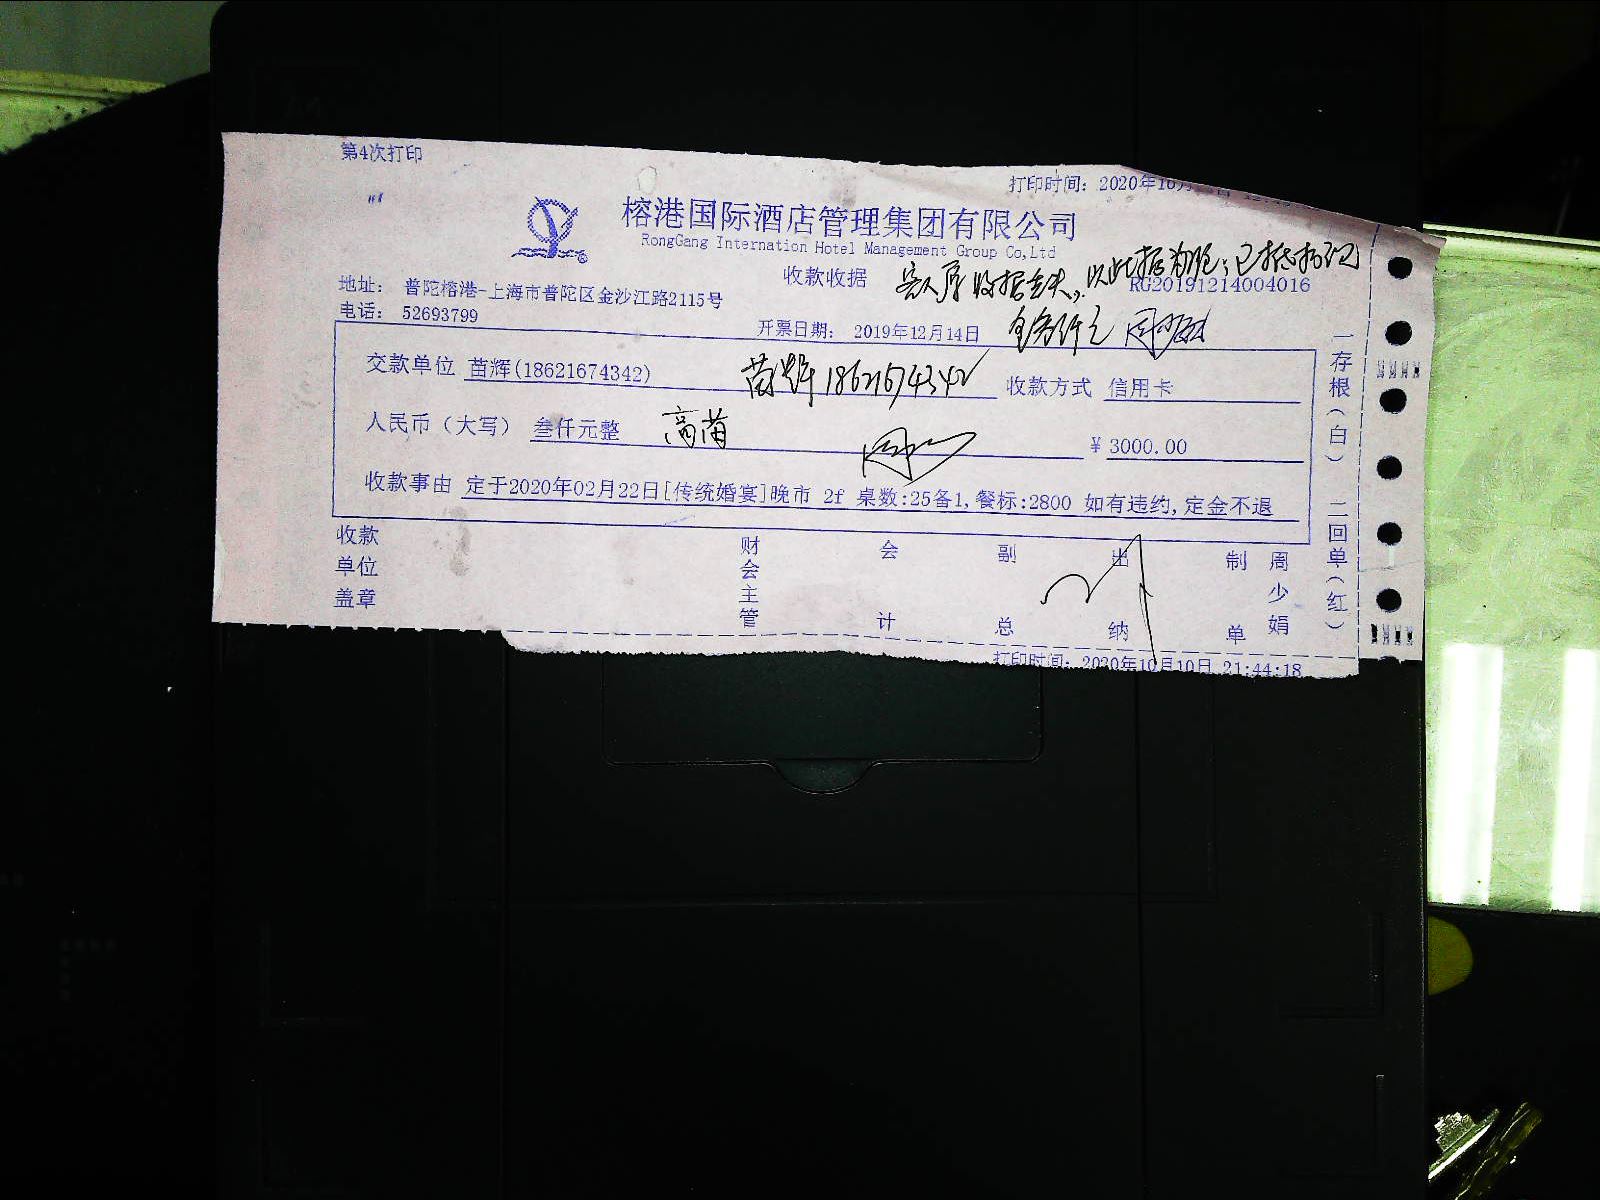 第4次打印
打印时间: 2020年10月
榕港国际酒店管理集团有限公司
RongGang Internation Hotel Management Group Co,Ltd
收款收据 客人原收据丢失, 以此据为准;已抵扣记
RG20191214004016
地址: 普陀榕港-上海市普陀区金沙江路2115号
电话: 52693799
开票日期: 2019年12月14日
交款单位 苗辉(18621674342) 苗辉 18621674342 收款方式 信用卡
人民币(大写) 叁仟元整 高苗 ¥3000.00
收款事由 定于2020年02月22日[传统婚宴]晚市 2f 桌数:25备1,餐标:2800 如有违约,定金不退
收款单位盖章 财会主管 会计 副总 出纳 制单 周少娟
一存根(白) 二回单(红)
打印时间: 2020年10月10日 21:44:18